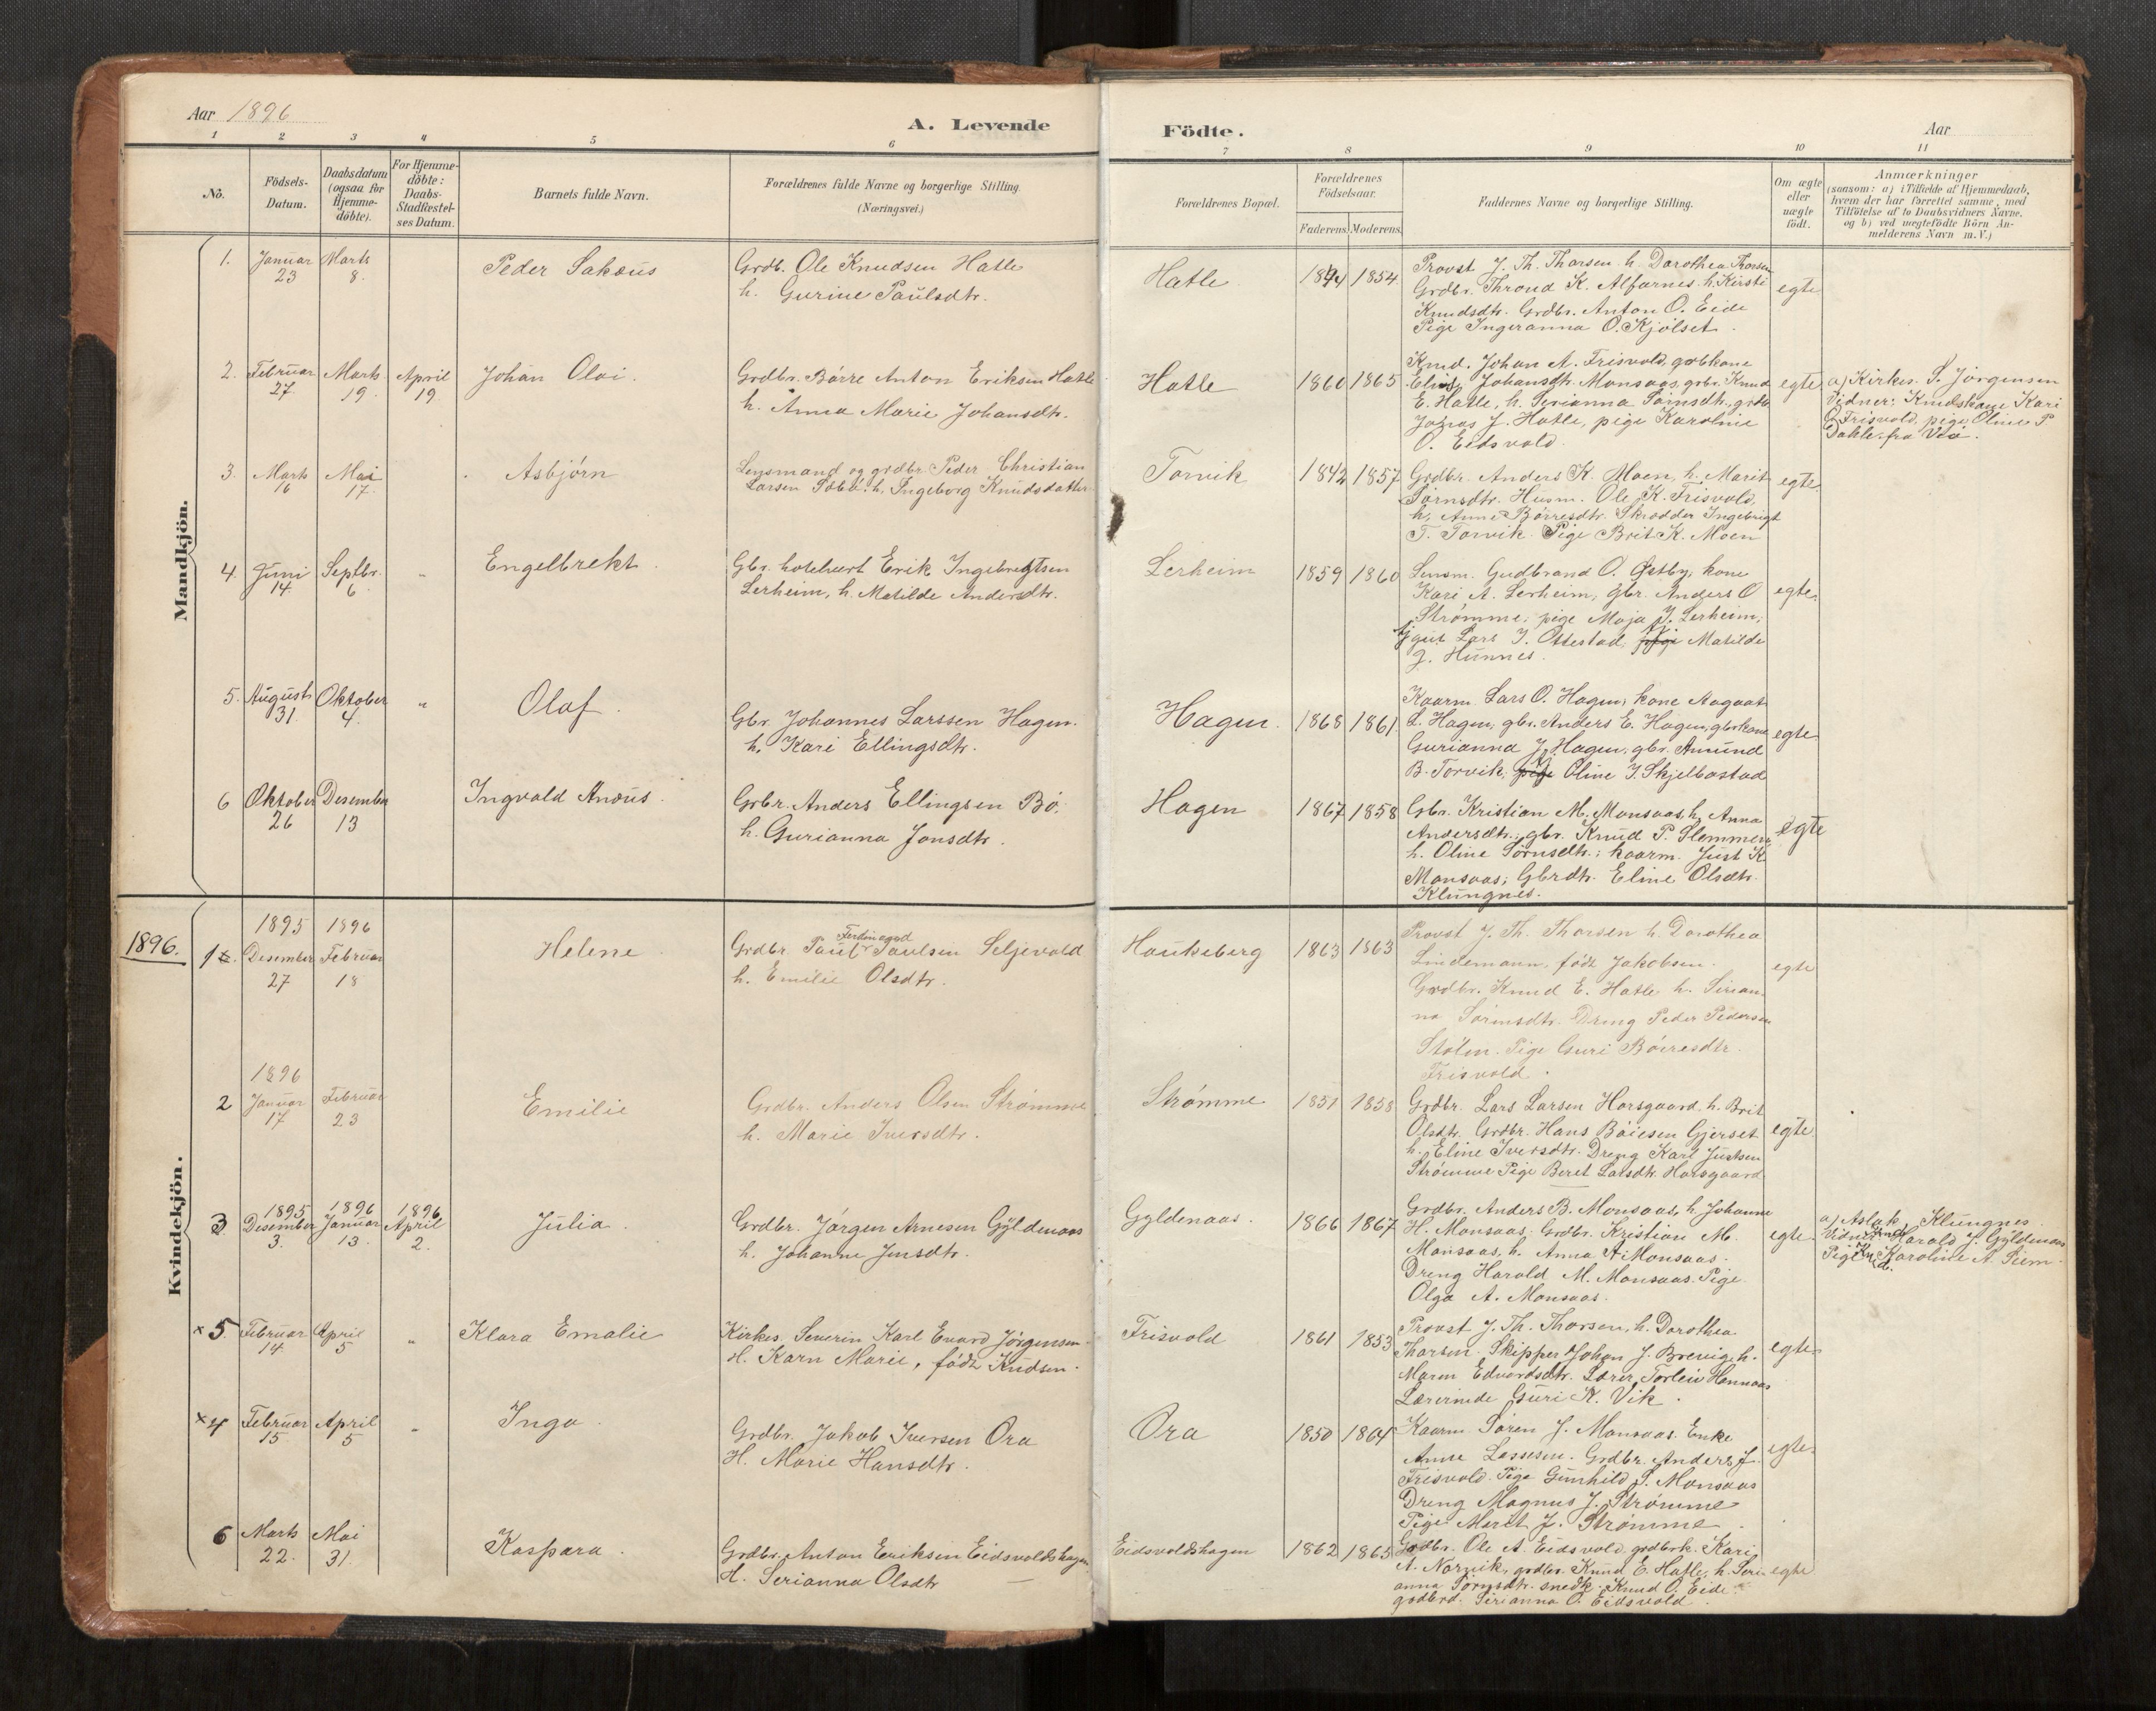 Aar 1896
A. Levende
Födte.
Aar
1 2 3 4 5 6 7 8 9 10 11
No.
Födsels-Datum.
Daabsdatum (ogsaa for Hjemme-döbte).
For Hjemme-döbte: Daabs-Stadfæstel-ses Datum.
Barnets fulde Navn.
Forældrenes fulde Navne og borgerlige Stilling. (Næringsvei.)
Forældrenes Bopæl.
Forældrenes Födselsaar.
Faderens. Moderens.
Faddernes Navne og borgerlige Stilling.
Om ægte eller uægte födt.
Anmærkninger
(saasom: a) i Tilfælde af Hjemmedaab,
hvem der har forrettet samme, med
Tilföielse af to Daabsvidners Navne.
og b) ved uægtefödte Börn An-
melderens Navn m.V.)
Mandkjön.
1. Januar 23 Marts 8. Peder Sakæus
Grdb. Ole Knudsen Hatle
h. Gurine Paulsdtr.
Hatle 1844 1854
Provst J. Th. Thorsen h. Dorothea Thorsen
Grdbr. Thrond K. Alfarnes h. Kirsti
Knudsdtr. Grdbr. Anton O. Eide
Pige Ingeranna O. Kjölset.
egte
2. Februar 27. Marts 19. April 19. Johan Olai.
Grdbr. Börre Anton Eriksen Hatle
h. Anna Marie Johansdtr.
Hatle 1860 1865
Knud. Johan A. Frisvold, grbkone
Johansdtr. Monsaas, grbr. Knud
E. Hatle, h. Serianna Sörnsdtr., grdb.
J. Hatle, pige Karoline
O. Eidsvold.
egte
a) Kirkes. S. Jörgensen
Vidner: Knudskone Kari
Frisvold, pige Oline P
Dahle fra Veö.
3. Marts 16 Mai 17. Asbjörn
Lensmand og grdbr. Peder Christian
Larsen h. Ingeborg Knudsdatter
Torvik 1842 1857
Grdbr. Anders K. Moen, h. Marit
Sörnsdtr. Husm. Ole K. Frisvold,
h. Anne Börresdtr. Skrædder Ingebrigt
T. Torvik. Pige Brit K. Moen
egte.
4 Juni 14 Septbr. 6 " Engelbrekt
Gbr. hotelvert Erik Ingebregtsen
Lerheim, h. Matilde Andersdtr.
Lerheim 1859 1860
Lensm. Gudbrand O. Østby, kone
Kari A. Lerheim, gbr. Anders O
Strømme, pige Maja J. Lerheim,
Lars J. Ottestad, pige Matilde
J. Hunnes.
egte.
5. August 31. Oktober 4. " Olaf.
Gbr. Johannes Larssen Hagen.
h. Kari Ellingsdtr.
Hagen. 1868 1861
Kaarm. Lars O. Hagen, kone Aagaat
L. Hagen, gbr. Anders E. Hagen, gbrkone
Gurianna J. Hagen, gbr. Amund
B. Torvik, pige Oline J. Skjelbostad
egte.
6 Oktober 26 Desember 13 Ingvald Anæus.
Grbr. Anders Ellingsen Bö.
h. Gurianna Jonsdtr.
Hagen 1867 1858
Gbr. Kristian M. Monsaas, h. Anna
Andersdtr.; gbr. Knud P. Slemmen,
h. Oline Sörnsdtr.; kaarm. Just K.
Monsaas; Gbrdtr. Eline Olsdtr.
Klungnes.
egte
Kvindekjön.
1896.
1. 1895 Desember 27 1896 Februar 18 Helene
Grdbr. Paul Ferdinand Paulsen Seljevold
h. Emilie Olsdtr.
Haukeberg 1863 1863
Provst J. Th. Thorsen h. Dorothea
Lindemann, född Jakobsen.
Grdbr. Knud E. Hatle h. Serian-
na Sörnsdtr. Dreng Peder Pedersen
Stölen. Pige Guri Börresdtr.
Frisvold.
egte
2 1896 Januar 17 Februar 23 Emilie
Grdbr. Anders Olsen Strømme
h. Marie Iversdtr.
Strømme 1851 1858
Grdbr. Lars Larsen Horsgaard, h. Brit
Olsdtr. Grdbr. Hans Gjerset
h. Eline Iversdtr. Dreng Karl Justsen
Strömme Pige Beret Larsdtr. Horsgaard
egte.
3. 1895 Desember 3. 1896 Januar 13. 1896 April 2. Julia.
Grdbr. Jörgen Arnesen Gyldenaas
h. Johanne Jensdtr.
Gyldenaas. 1866 1867
Grdbr. Anders B. Monsaas, h. Johanne
H. Monsaas. Grdbr. Kristian M.
Monsaas, h. Anna A. Monsaas.
Dreng Harald M. Monsaas. Pige
Olga A. Monsaas.
egte.
a) Aslak Klungnes
Vidner: Harald J. Gyldenaas
Pige Karoline A. Siem.
x 5. Februar 14 April 5 " Klara Emalie
Kirkes. Severin Karl Evard Jörgensen
H. Karn Marie, född Knudsen.
Frisvold 1861 1853
Provst J. Th. Thorsen, h. Dorothea
Thorsen. Skipper Johan J. Brevig, h.
Maren Edvardsdtr. Lærer Torleiv Hannaas
Lærerinde Guri K. Vik.
egte.
x 4 Februar 15 April 5 " Inga.
Grdbr. Jakob Iversen Ora
H. Marie Hansdtr.
Ora 1850 1864
Kaarm. Sören J. Monsaas. Enke
Anne Lassesen. Grdbr. Anders J.
Frisvold. Pige Gunhild S. Monsaas
Dreng Magnus J. Strömme
Pige Marit J. Strömme.
egte.
6 Marts 22. Mai 31. Kaspara.
Grdbr. Anton Eriksen Eidsvoldshagen
H. Serianna Olsdtr
Eidsvoldshagen 1862 1865
Grdbr. Ole A. Eidsvold, grdbrk. Kari
A. Norvik, grdbr. Knud E. Hatle, h. Seri-
anna Sörnsdtr. snedk. Knud O. Eide
grdbrd. Serianna O. Eidsvold.
egte